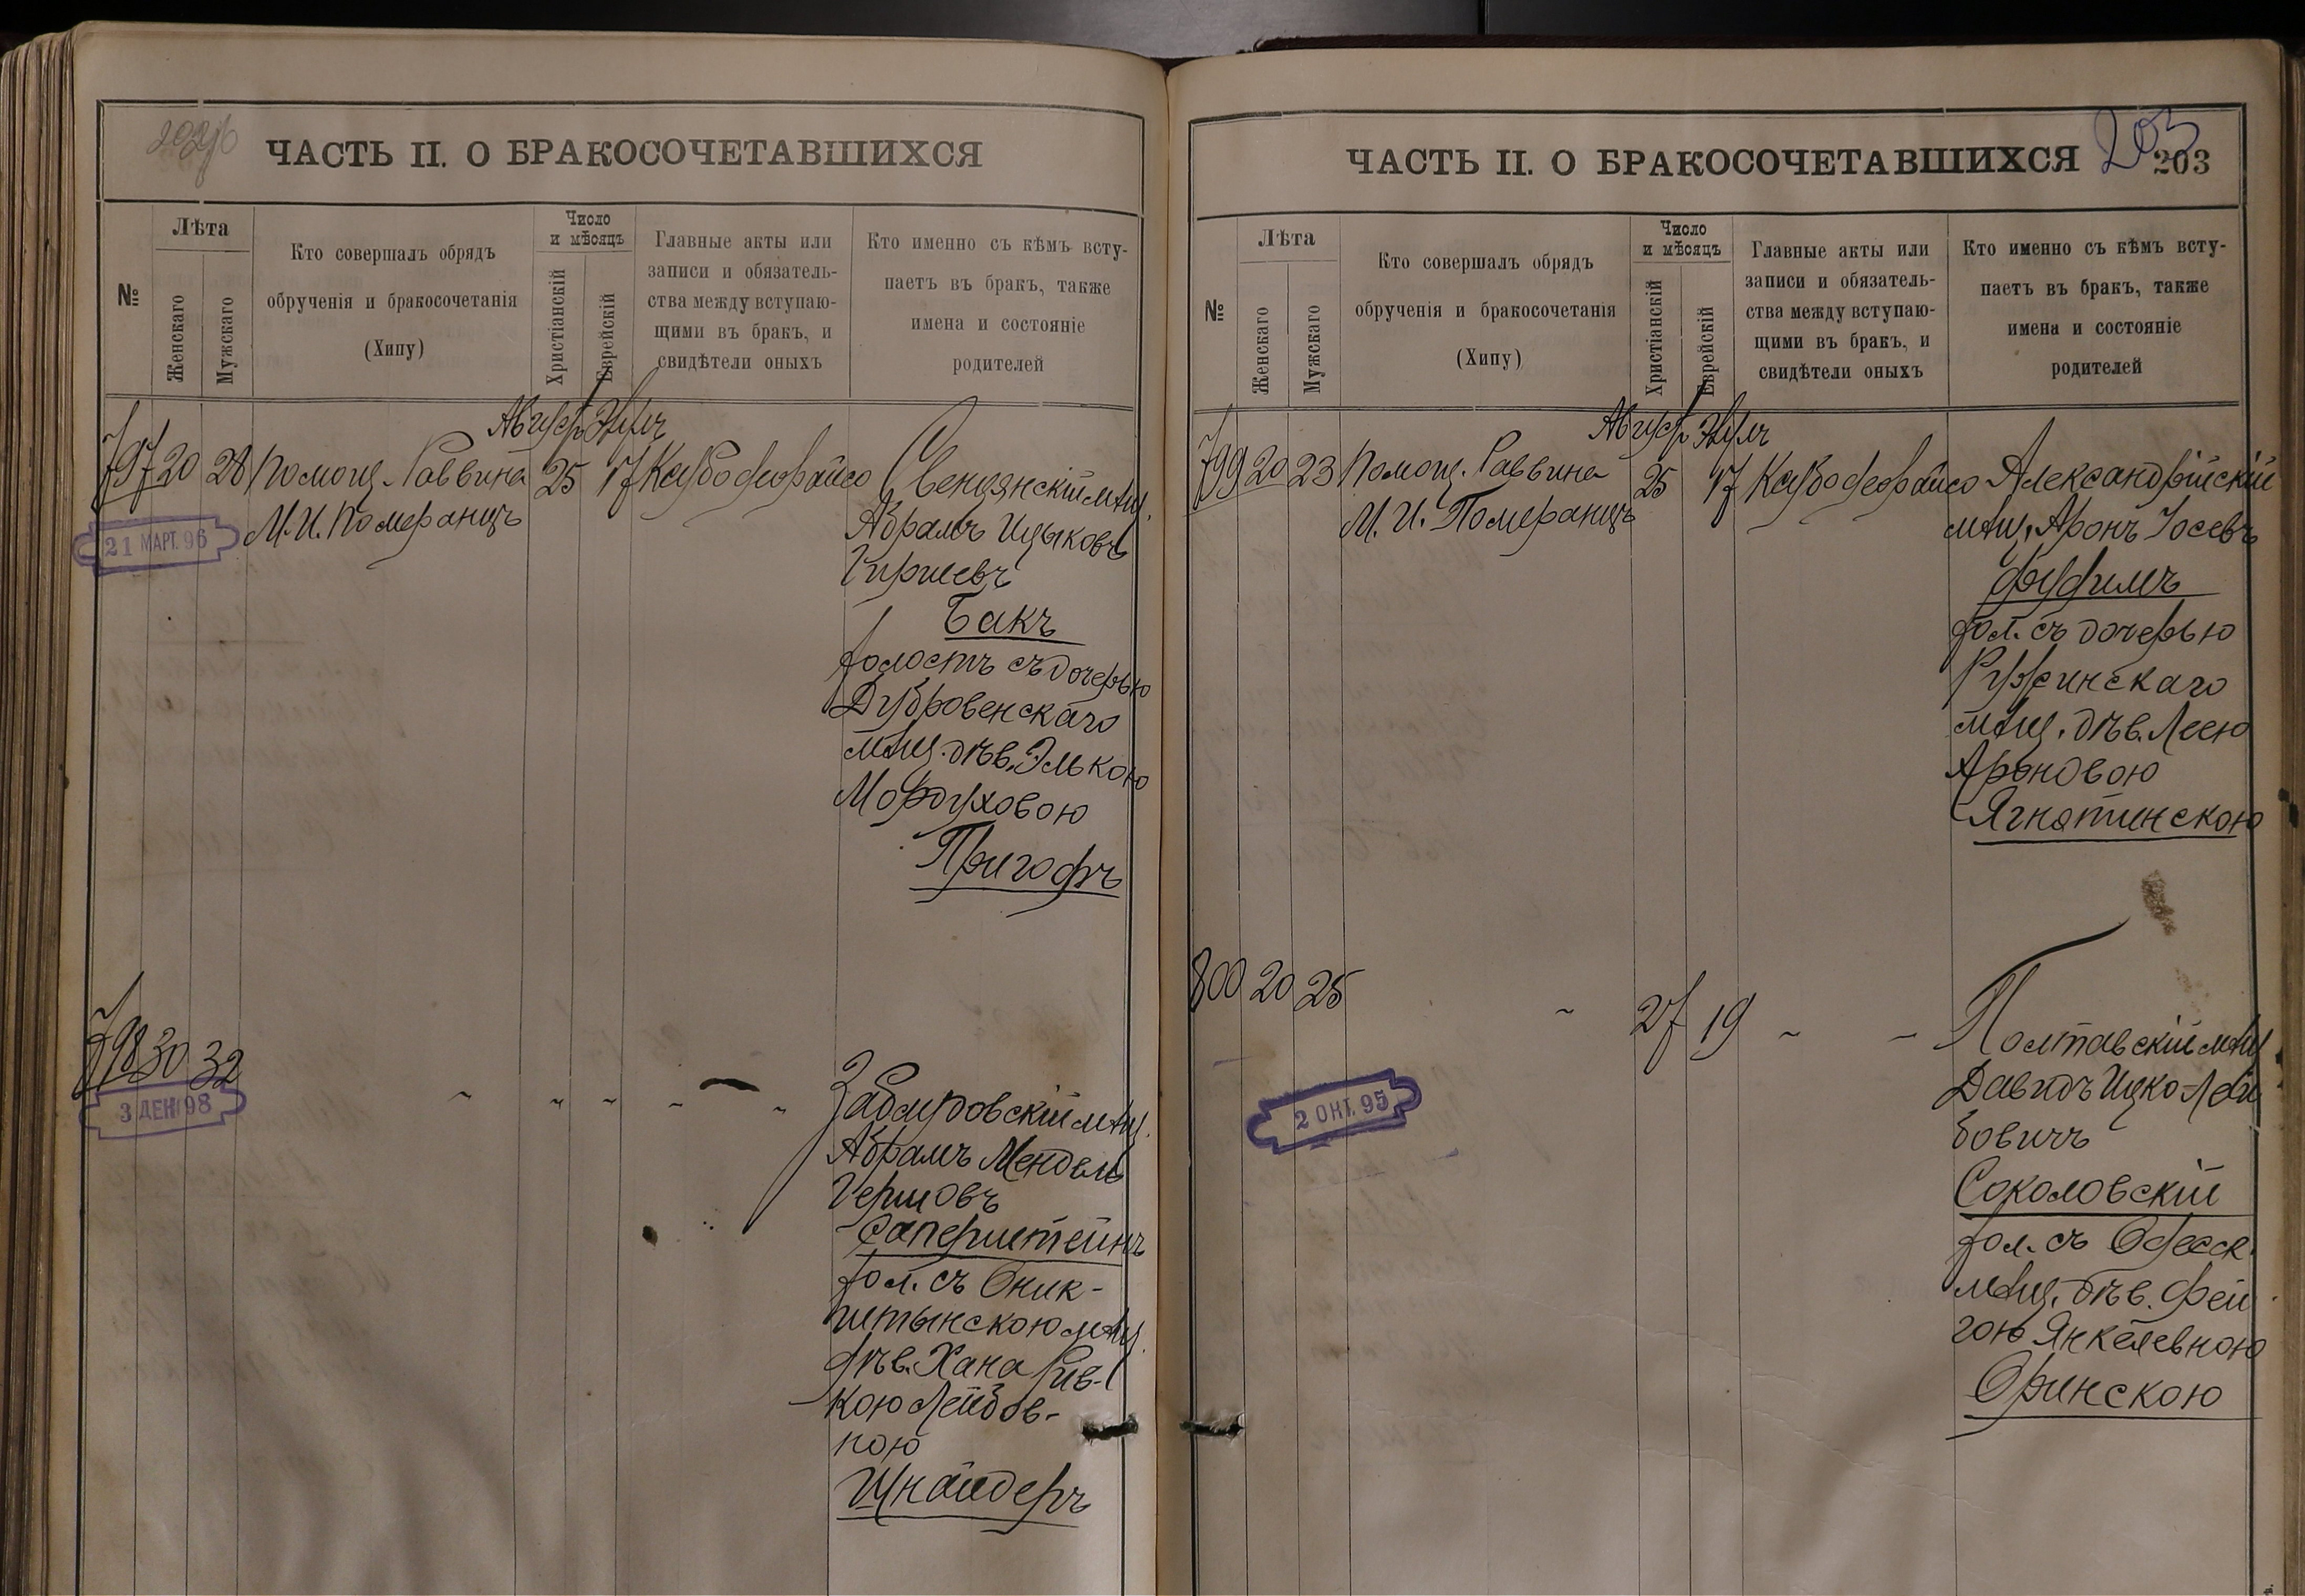 ЧАСТЬ II. О БРАКОСОЧЕТАВШИХСЯ
№
Лѣта
Женскаго
Мужскаго
Кто совершалъ обрядъ
обрученія и бракосочетанія
(Хипу)
Число
и мѣсяцъ
Христіанскій
Еврейскій
Главные акты или
записи и обязатель-
ства между вступаю-
щими въ бракъ, и
свидѣтели оныхъ
Кто именно съ кѣмъ всту-
паетъ въ бракъ, также
имена и состояніе
родителей
Август Элулъ
797 20 28 Помощ. Раввина 25 17 Свенцянскій мѣщ.
М. И. Померанцъ
21 МАРТ. 96
Абрамъ Ицыковъ
Гиршевъ
Бакъ
холостъ съ дочерью
Дубровенскаго
мѣщ. дѣв. Элькою
Мордуховою
Пригофъ
798 30 32 Мѣщ.
3 ДЕК 98
Абрамъ Мендель
Гершовъ
Саперштейнъ
хол. съ Оник-
штынскою мѣщ.
дѣв. Хана Рив-
кою Лейбов-
ною
Шнайдеръ
ЧАСТЬ II. О БРАКОСОЧЕТАВШИХСЯ
203
203
№
Лѣта
Женскаго
Мужскаго
Кто совершалъ обрядъ
обрученія и бракосочетанія
(Хипу)
Число
и мѣсяцъ
Христіанскій
Еврейскій
Главные акты или
записи и обязатель-
ства между вступаю-
щими въ бракъ, и
свидѣтели оныхъ
Кто именно съ кѣмъ всту-
паетъ въ бракъ, также
имена и состояніе
родителей
Август Элулъ
799 20 23 Помощ. Раввина 25 17 Александрійскій
М. И. Померанцъ
мѣщ. Аронъ Іосевъ
хол. съ дочерью
Ружинскаго
мѣщ. дѣв. Леею
Ароновою
Ягнятинскою
800 20 25 27 19 Полтавскій мѣщ
2 ОКТ. 95
Давидъ Ицко-Лей
бовичъ
Соколовскій
хол. съ Одесск.
мѣщ. дѣв. Фей
гою Янкелевною
Оринскою